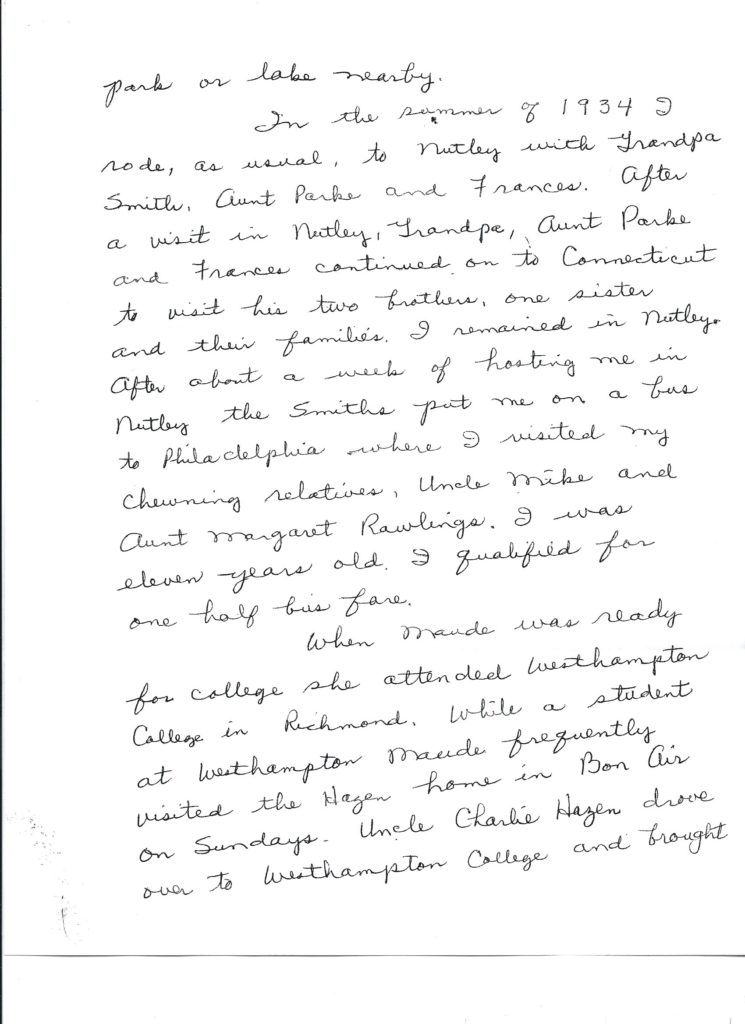 park or lake nearby.
In the summer of 1934 I
rode, as usual, to Nutley with Grandpa
Smith, Aunt Parke and Frances. After
a visit in Nutley, Grandpa, Aunt Parke
and Frances continued on to Connecticut
to visit his two brothers, one sister
and their families. I remained in Nutley.
After about a week of hosting me in
Nutley the Smiths put me on a bus
to Philadelphia where I visited my
Chewning relatives, Uncle Mike and
Aunt Margaret Rawlings. I was
eleven years old. I qualified for
one half bus fare.
When Maude was ready
for college she attended Westhampton
College in Richmond. While a student
at Westhampton Maude frequently
visited the Hazen home in Bon Air
on Sundays. Uncle Charlie Hazen drove
over to Westhampton College and brought